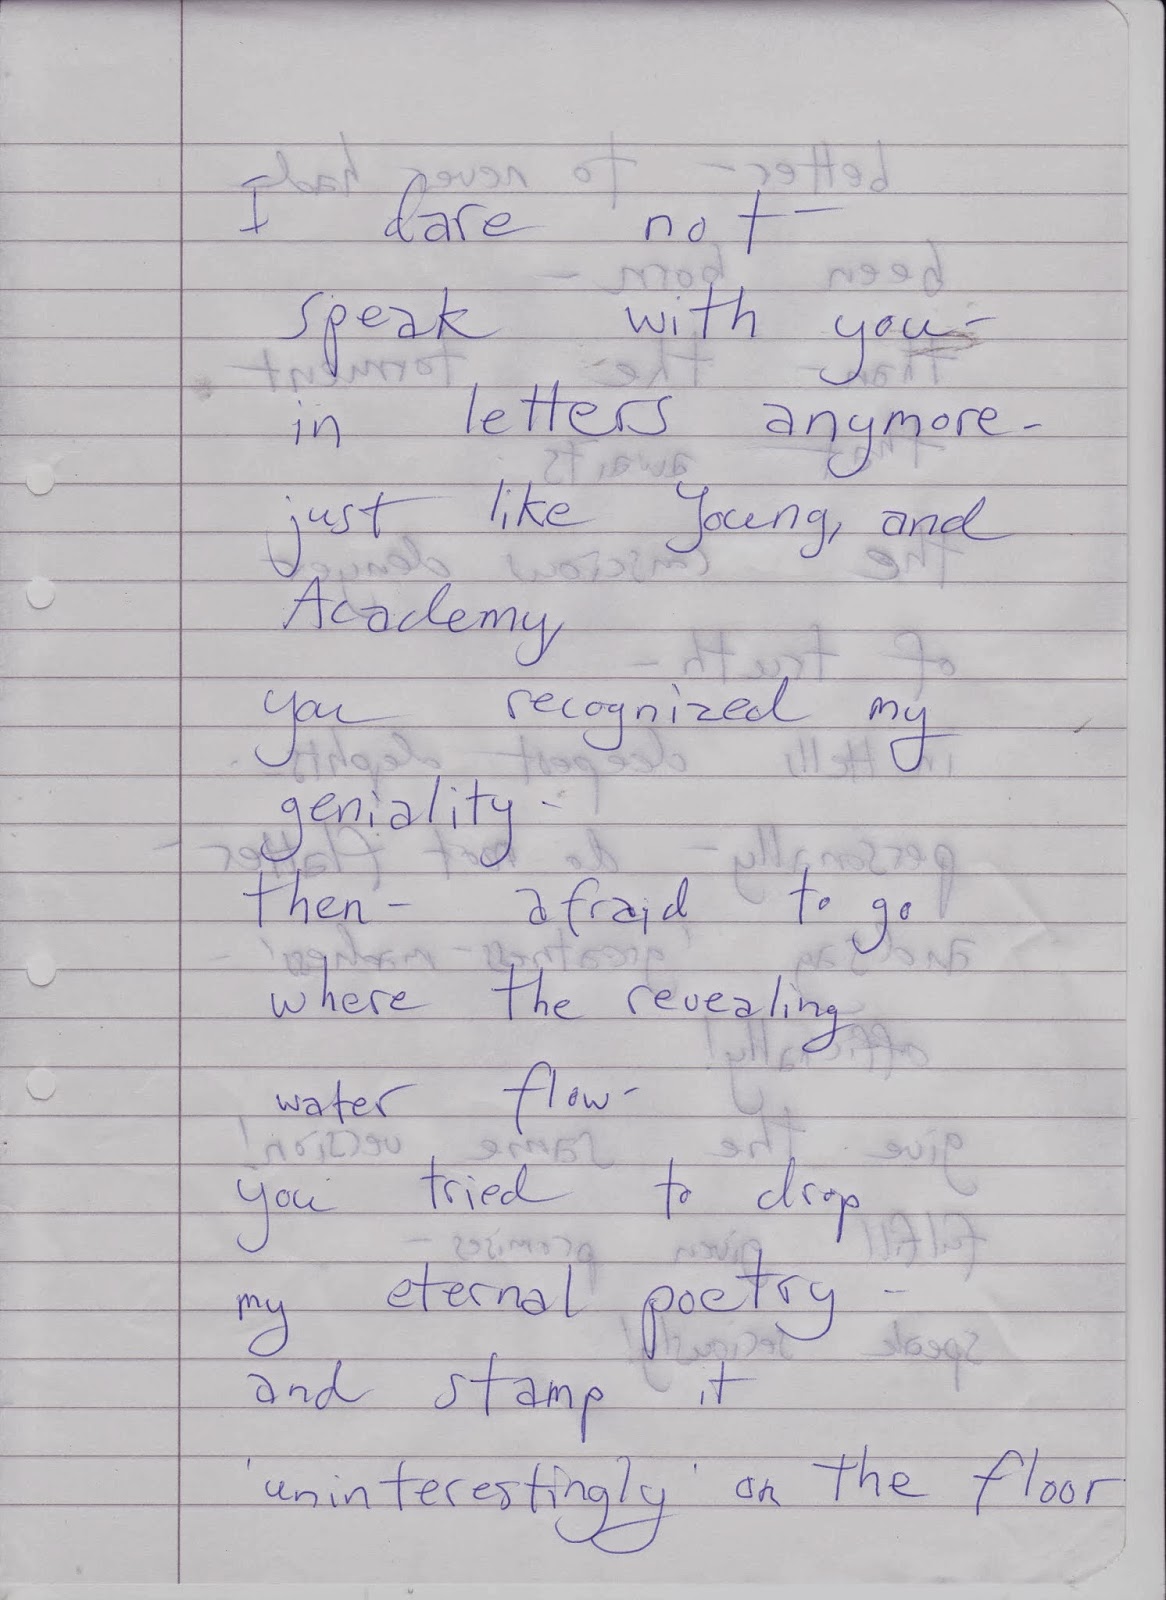 I dare not-
speak with you-
in letters anymore-
just like Young, and
Academy,
you recognized my
geniality-
then- afraid to go
where the revealing
water flow-
you tried to drop
my eternal poetry-
and stamp it
'uninterestingly' on the floor